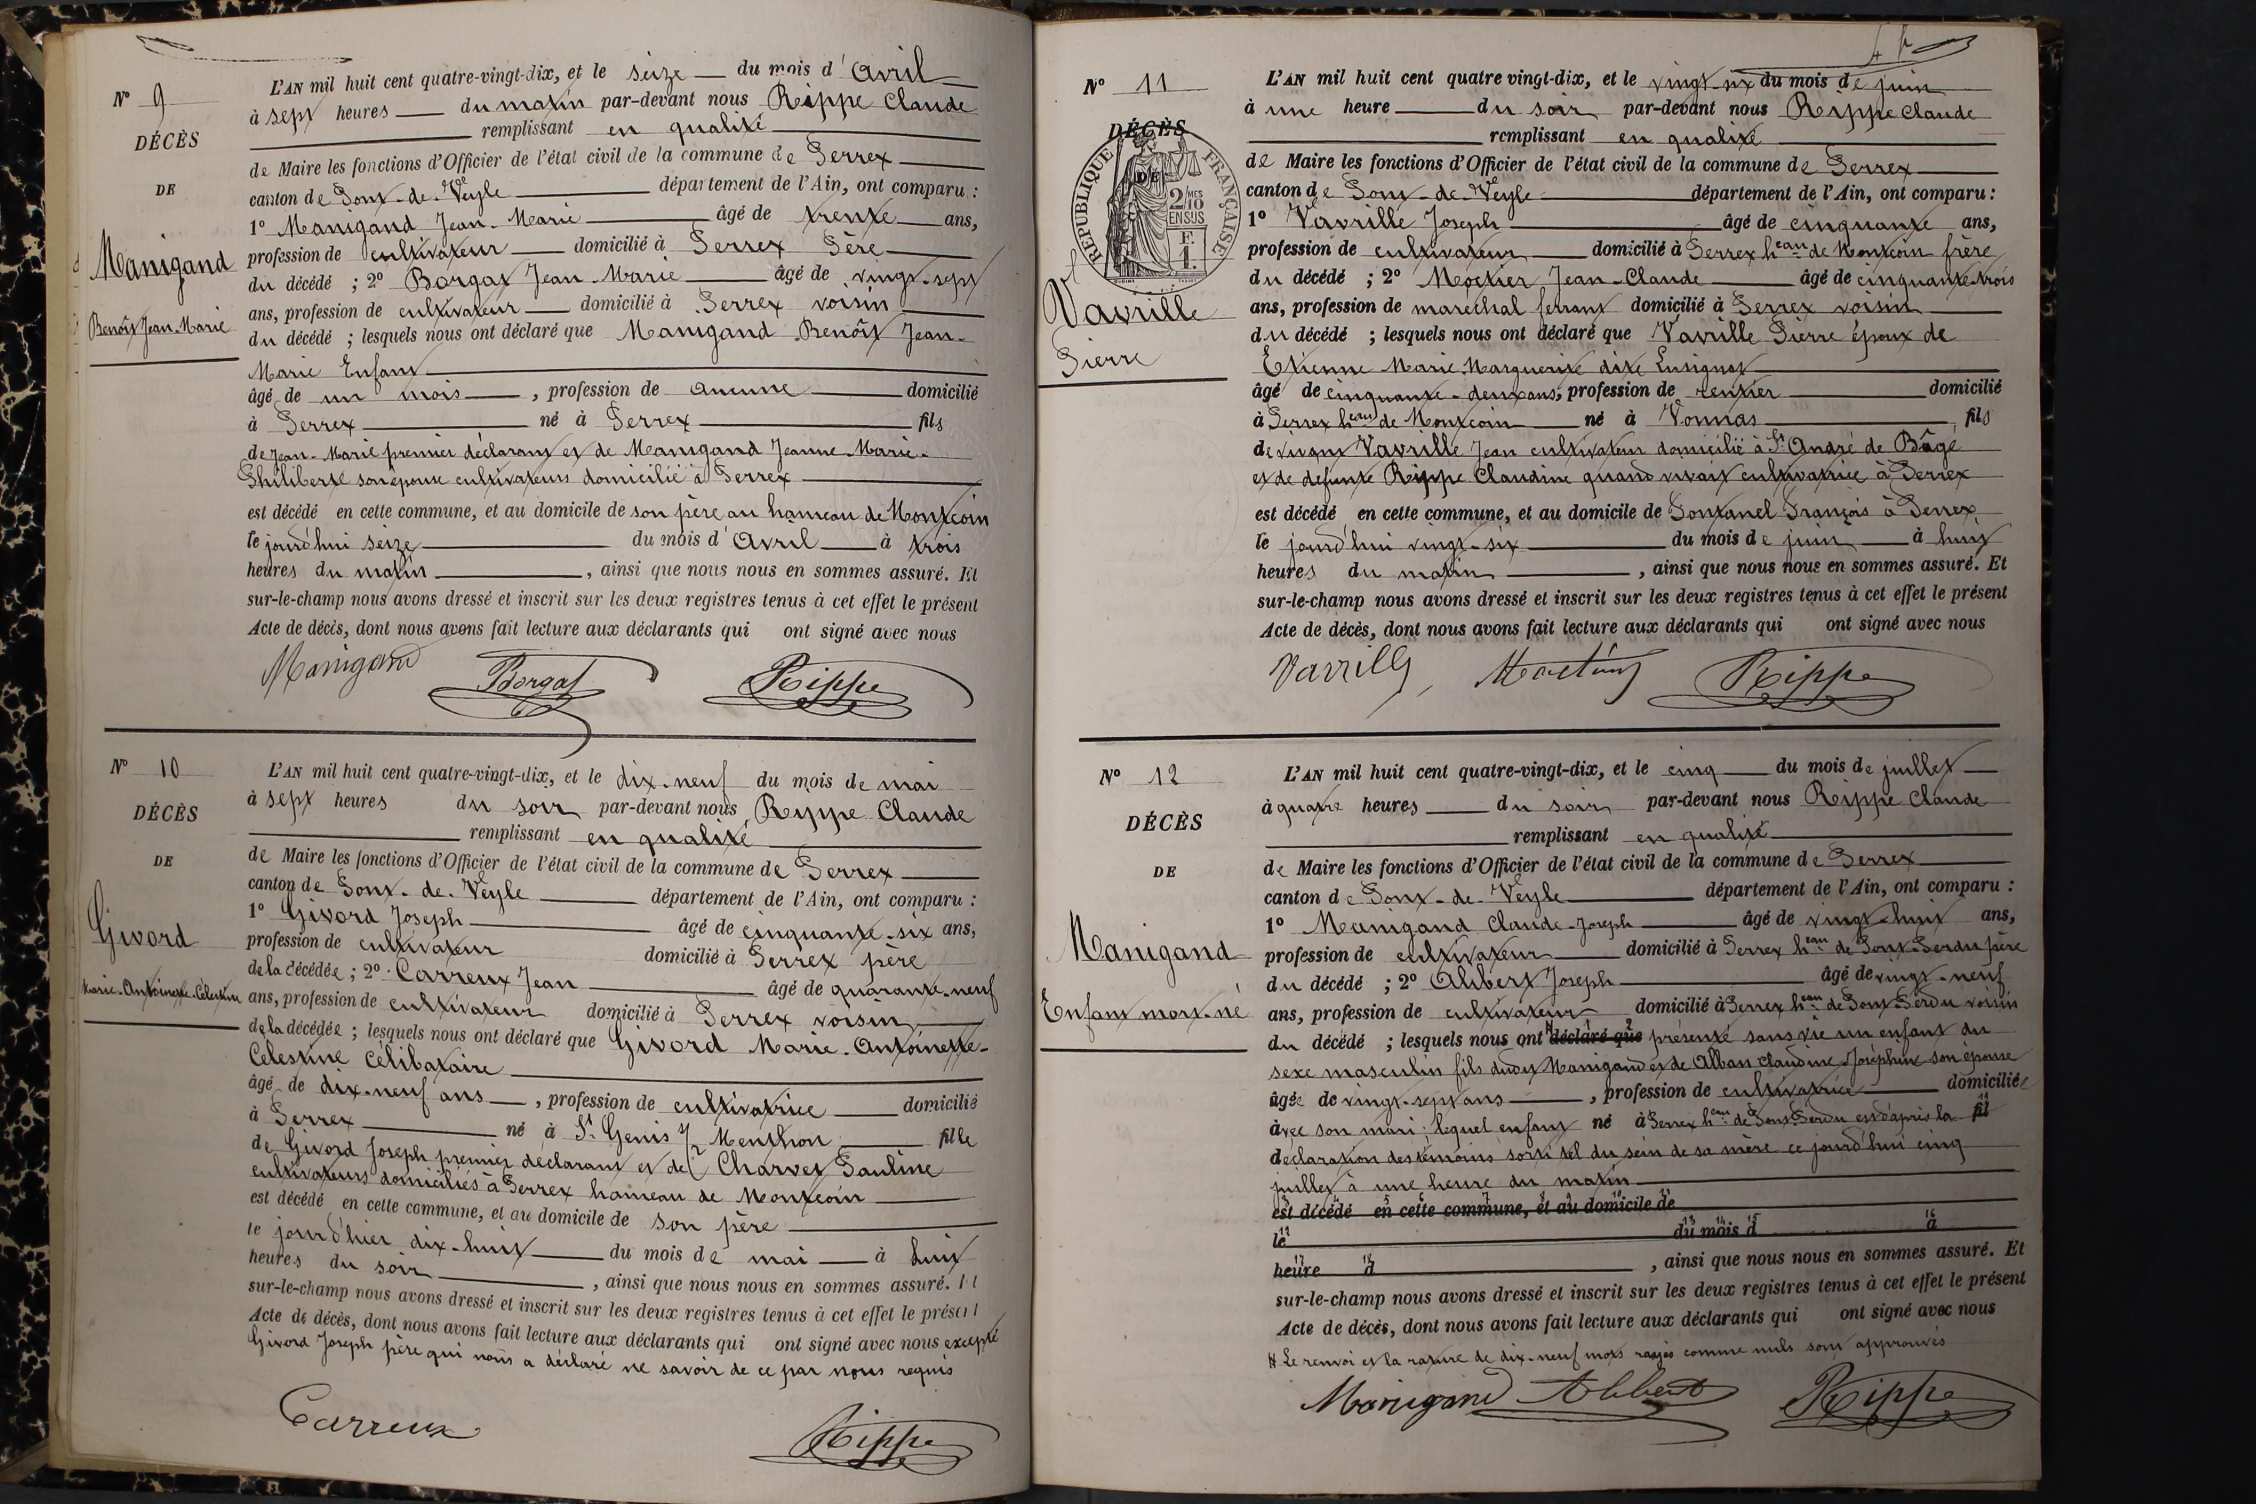 N° 9
DÉCÈS
DE
Manigand
Benoît Jean-Marie
L'AN mil huit cent quatre-vingt-dix, et le seize du mois d'avril
à sept heures du matin par-devant nous Rippe Claude
remplissant en qualité
de Maire les fonctions d'Officier de l'état civil de la commune de Perrex
canton de Pont-de-Veyle département de l'Ain, ont comparu :
1° Manigand Jean-Marie âgé de trente ans,
profession de cultivateur domicilié à Perrex Père
du décédé ; 2° Borgat Jean-Marie âgé de vingt-sept
ans, profession de cultivateur domicilié à Perrex voisin
du décédé ; lesquels nous ont déclaré que Manigand Benoît Jean-
Marie Enfant
âgé de un mois, profession de aucune domicilié
à Perrex né à Perrex fils
de Jean-Marie premier déclarant et de Manigand Jeanne-Marie-
Philiberte son épouse cultivateurs domicilié à Perrex
est décédé en cette commune, et au domicile de son père au hameau de Montcoin
le jourd'hui seize du mois d'avril à trois
heures du matin, ainsi que nous nous en sommes assuré. Et
sur-le-champ nous avons dressé et inscrit sur les deux registres tenus à cet effet le présent
Acte de décès, dont nous avons fait lecture aux déclarants qui ont signé avec nous
Manigand Borgat Rippe
N° 10
DÉCÈS
DE
Givord
Marie-Antoinette-Célestine
L'AN mil huit cent quatre-vingt-dix, et le dix-neuf du mois de mai
à sept heures du soir par-devant nous Rippe Claude
remplissant en qualité
de Maire les fonctions d'Officier de l'état civil de la commune de Perrex
canton de Pont-de-Veyle département de l'Ain, ont comparu :
1° Givord Joseph âgé de cinquante-six ans,
profession de cultivateur domicilié à Perrex père
de la décédée ; 2° Carreux Jean âgé de quarante-neuf
ans, profession de cultivateur domicilié à Perrex voisin
de la décédée ; lesquels nous ont déclaré que Givord Marie-Antoinette-
Celestine célibataire
âgé de dix-neuf ans, profession de cultivatrice domicilié
à Perrex né à St Genis s/ Menthon fille
de Givord Joseph premier déclarant et de Charvet Pauline
cultivateurs domiciliés à Perrex hameau de Montcoin
est décédé en cette commune, et au domicile de son père
le jour d'hier dix-huit du mois de mai à huit
heures du soir, ainsi que nous nous en sommes assuré. Et
sur-le-champ nous avons dressé et inscrit sur les deux registres tenus à cet effet le présent
Acte de décès, dont nous avons fait lecture aux déclarants qui ont signé avec nous excepté
Givord Joseph père qui nous a déclaré ne savoir de ce par nous requis
Carreux Rippe
N° 11
DÉCÈS
DE
RÉPUBLIQUE FRANÇAISE
2/10 MES
EN SUS
F.
1.
Vavrille
Pierre
L'AN mil huit cent quatre vingt-dix, et le vingt-six du mois de juin
à une heure du soir par-devant nous Rippe Claude
remplissant en qualité
de Maire les fonctions d'Officier de l'état civil de la commune de Perrex
canton de Pont-de-Veyle département de l'Ain, ont comparu :
1° Vavrille Joseph âgé de cinquante ans,
profession de cultivateur domicilié à Perrex heau de Montcoin frère
du décédé ; 2° Moctier Jean-Claude âgé de cinquante-trois
ans, profession de maréchal ferrant domicilié à Perrex voisin
du décédé ; lesquels nous ont déclaré que Vavrille Pierre époux de
Etienne Marie Marguerite dite Lusignat
âgé de cinquante-deux ans, profession de rentier domicilié
à Perrex heau de Montcoin né à Vonnas fils
de vivant Vavrille Jean cultivateur domicilié à St André de Bâgé
et de defunte Rippe Claudine quand vivait cultivatrice à Perrex
est décédé en cette commune, et au domicile de Pontanel François à Perrex
le jourd'hui vingt-six du mois de juin à huit
heures du matin, ainsi que nous nous en sommes assuré. Et
sur-le-champ nous avons dressé et inscrit sur les deux registres tenus à cet effet le présent
Acte de décès, dont nous avons fait lecture aux déclarants qui ont signé avec nous
Vavrille Rippe
N° 12
DÉCÈS
DE
Manigand
Enfant mort-né
L'AN mil huit cent quatre-vingt-dix, et le cinq du mois de juillet
à quatre heures du soir par-devant nous Rippe Claude
remplissant en qualité
de Maire les fonctions d'Officier de l'état civil de la commune de Perrex
canton de Pont-de-Veyle département de l'Ain, ont comparu :
1° Manigand Claude-Joseph âgé de vingt-huit ans,
profession de cultivateur domicilié à Perrex heau de Pont-Perdu père
du décédé ; 2° Alibert Joseph âgé de vingt-neuf
ans, profession de cultivateur domicilié à Perrex heau de Pont-Perdu voisin
du décédé ; lesquels nous ont déclaré que présenté sans vie un enfant du
sexe masculin fils dudit Manigand et de Alban Claudine-Joséphine son épouse
âgée de vingt-sept ans, profession de cultivatrice domiciliée
avec son mari ; lequel enfant né à Perrex heau de Pont-Perdu est d'après la fil
déclaration des témoins sorti tel du sein de sa mère ce jourd'hui cinq
juillet à une heure du matin
est décédé en cette commune, et au domicile de
le du mois d à
heure d, ainsi que nous nous en sommes assuré. Et
sur-le-champ nous avons dressé et inscrit sur les deux registres tenus à cet effet le présent
Acte de décès, dont nous avons fait lecture aux déclarants qui ont signé avec nous
# Le renvoi et la rature de dix-neuf mots rayés comme nuls sont approuvés
Manigand Alibert Rippe